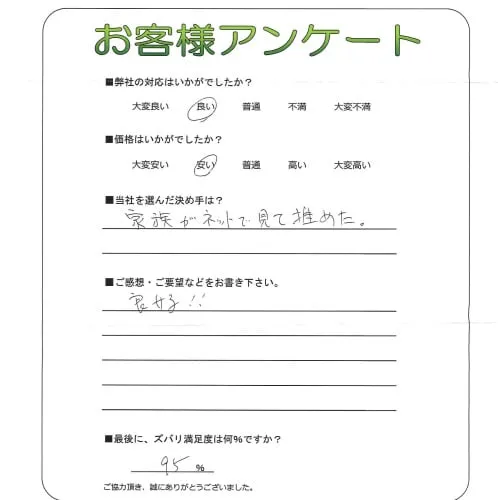 お客様アンケート
■弊社の対応はいかがでしたか？
大変良い 良い 普通 不満 大変不満
■価格はいかがでしたか？
大変安い 安い 普通 高い 大変高い
■当社を選んだ決め手は？
家族がネットで見て推めた。
■ご感想・ご要望などをお書き下さい。
良好!!
■最後に、ズバリ満足度は何%ですか？
95 %
ご協力頂き、誠にありがとうございました。